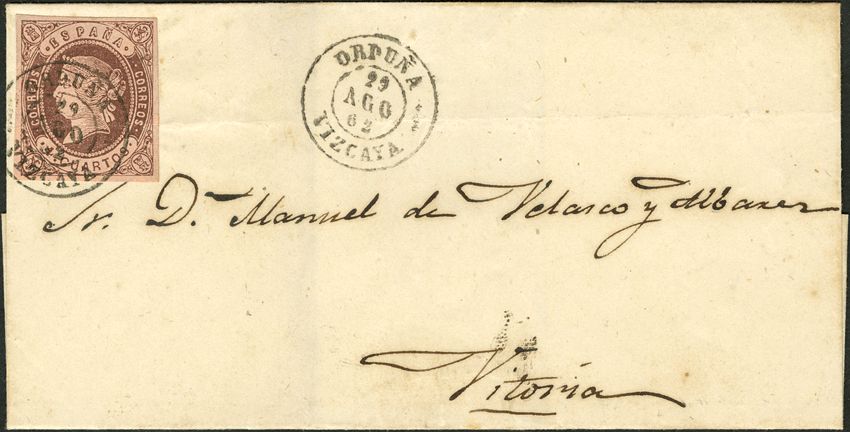 ESPAÑA
CORREOS
CORREOS
CUARTOS
ORDUÑA
29
VIZCAYA
ORDUÑA
29
AGO
62
VIZCAYA
Sr. D. Manuel de Velasco y
Vitoria